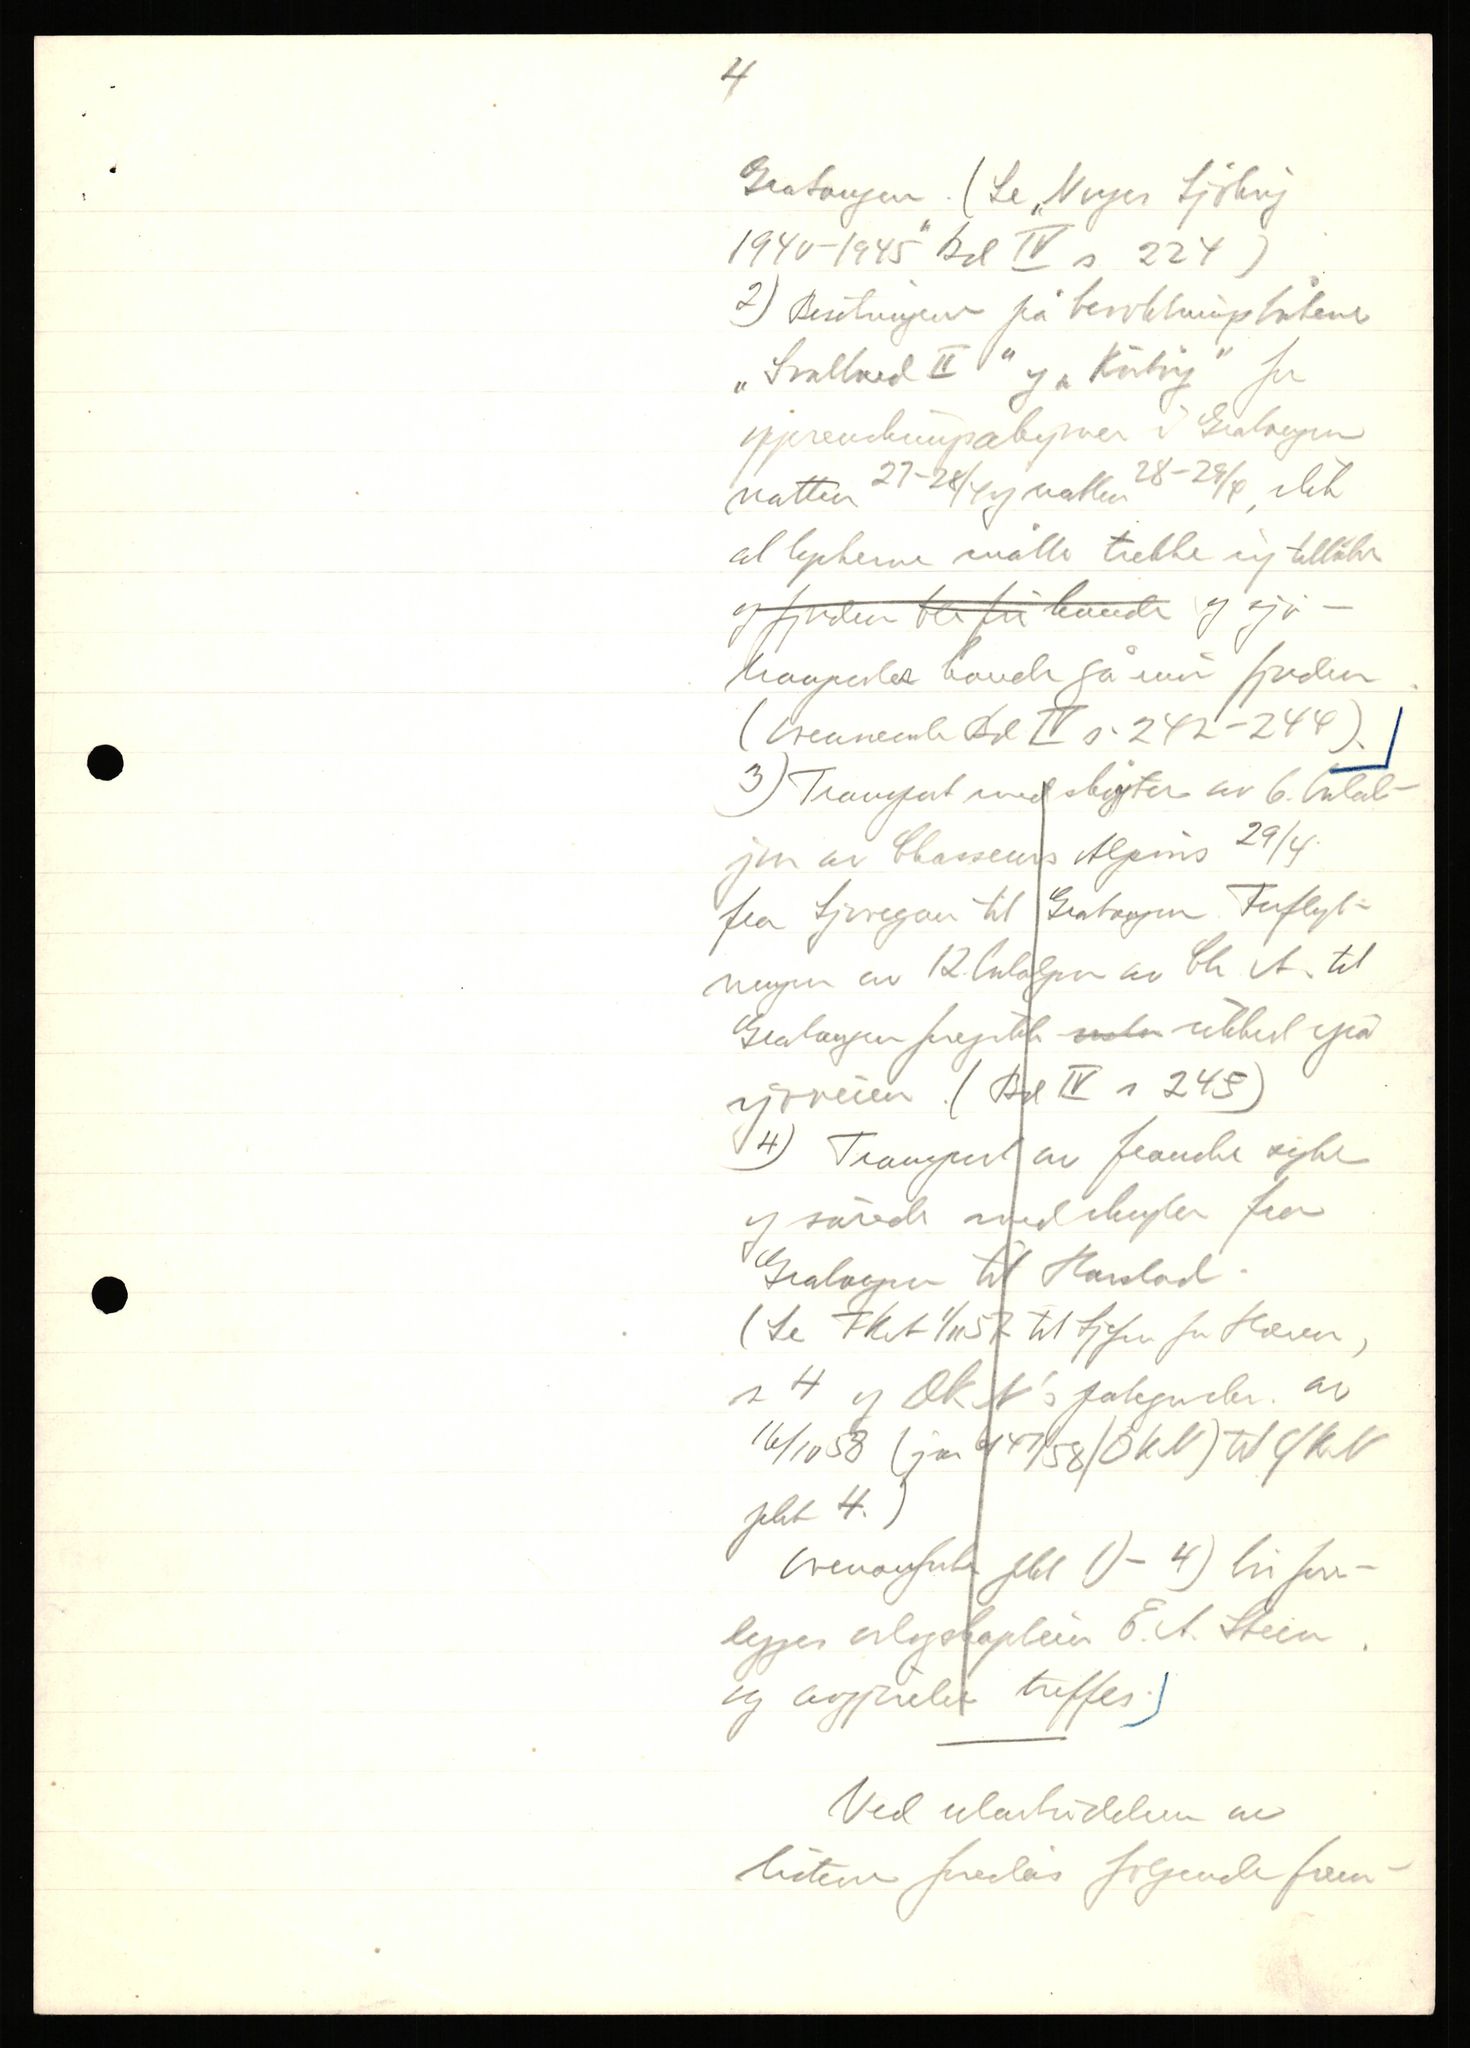 4
Gratangen. (Se „Norges Sjökrig
1940–1945" Bd IV s 224)
2) Besetningene på bevoktningsbåtene
„Svalbard II" og „Kvitøy" for
opprenskningsaksjoner i Gratangen
natten 27–28/4 og natten 28–29/4, slik
at tyskerne måtte trekke sig tilbake
og fjorden ble fri kunde og sjö-
transporter kunde gå inn fjorden.
(Ovennevnte Bd IV s. 242–244).
3) Transport med skøyter av 6. batal-
jon av Chasseurs Alpins 29/4
fra Sjøvegan til Gratangen. Forflyt-
ningen av 12. bataljon av Ch. A. til
Gratangen foregikk sikkert også
sjøveien. (Bd IV s 245)
4) Transport av franske syke
og sårede med skøyter fra
Gratangen til Harstad.
(Se til Sjefen for Hæren,
s 4 og ØKN's påtegnelse av
16/10 58 (jnr /58/ØKN) til
pkt 4.)
Ovenanførte pkt 1)–4) bør fore-
legges orlogskaptein E. A. Steen
og avgjörelse treffes.
Ved utarbeidelsen av
listene foreslås følgende frem-